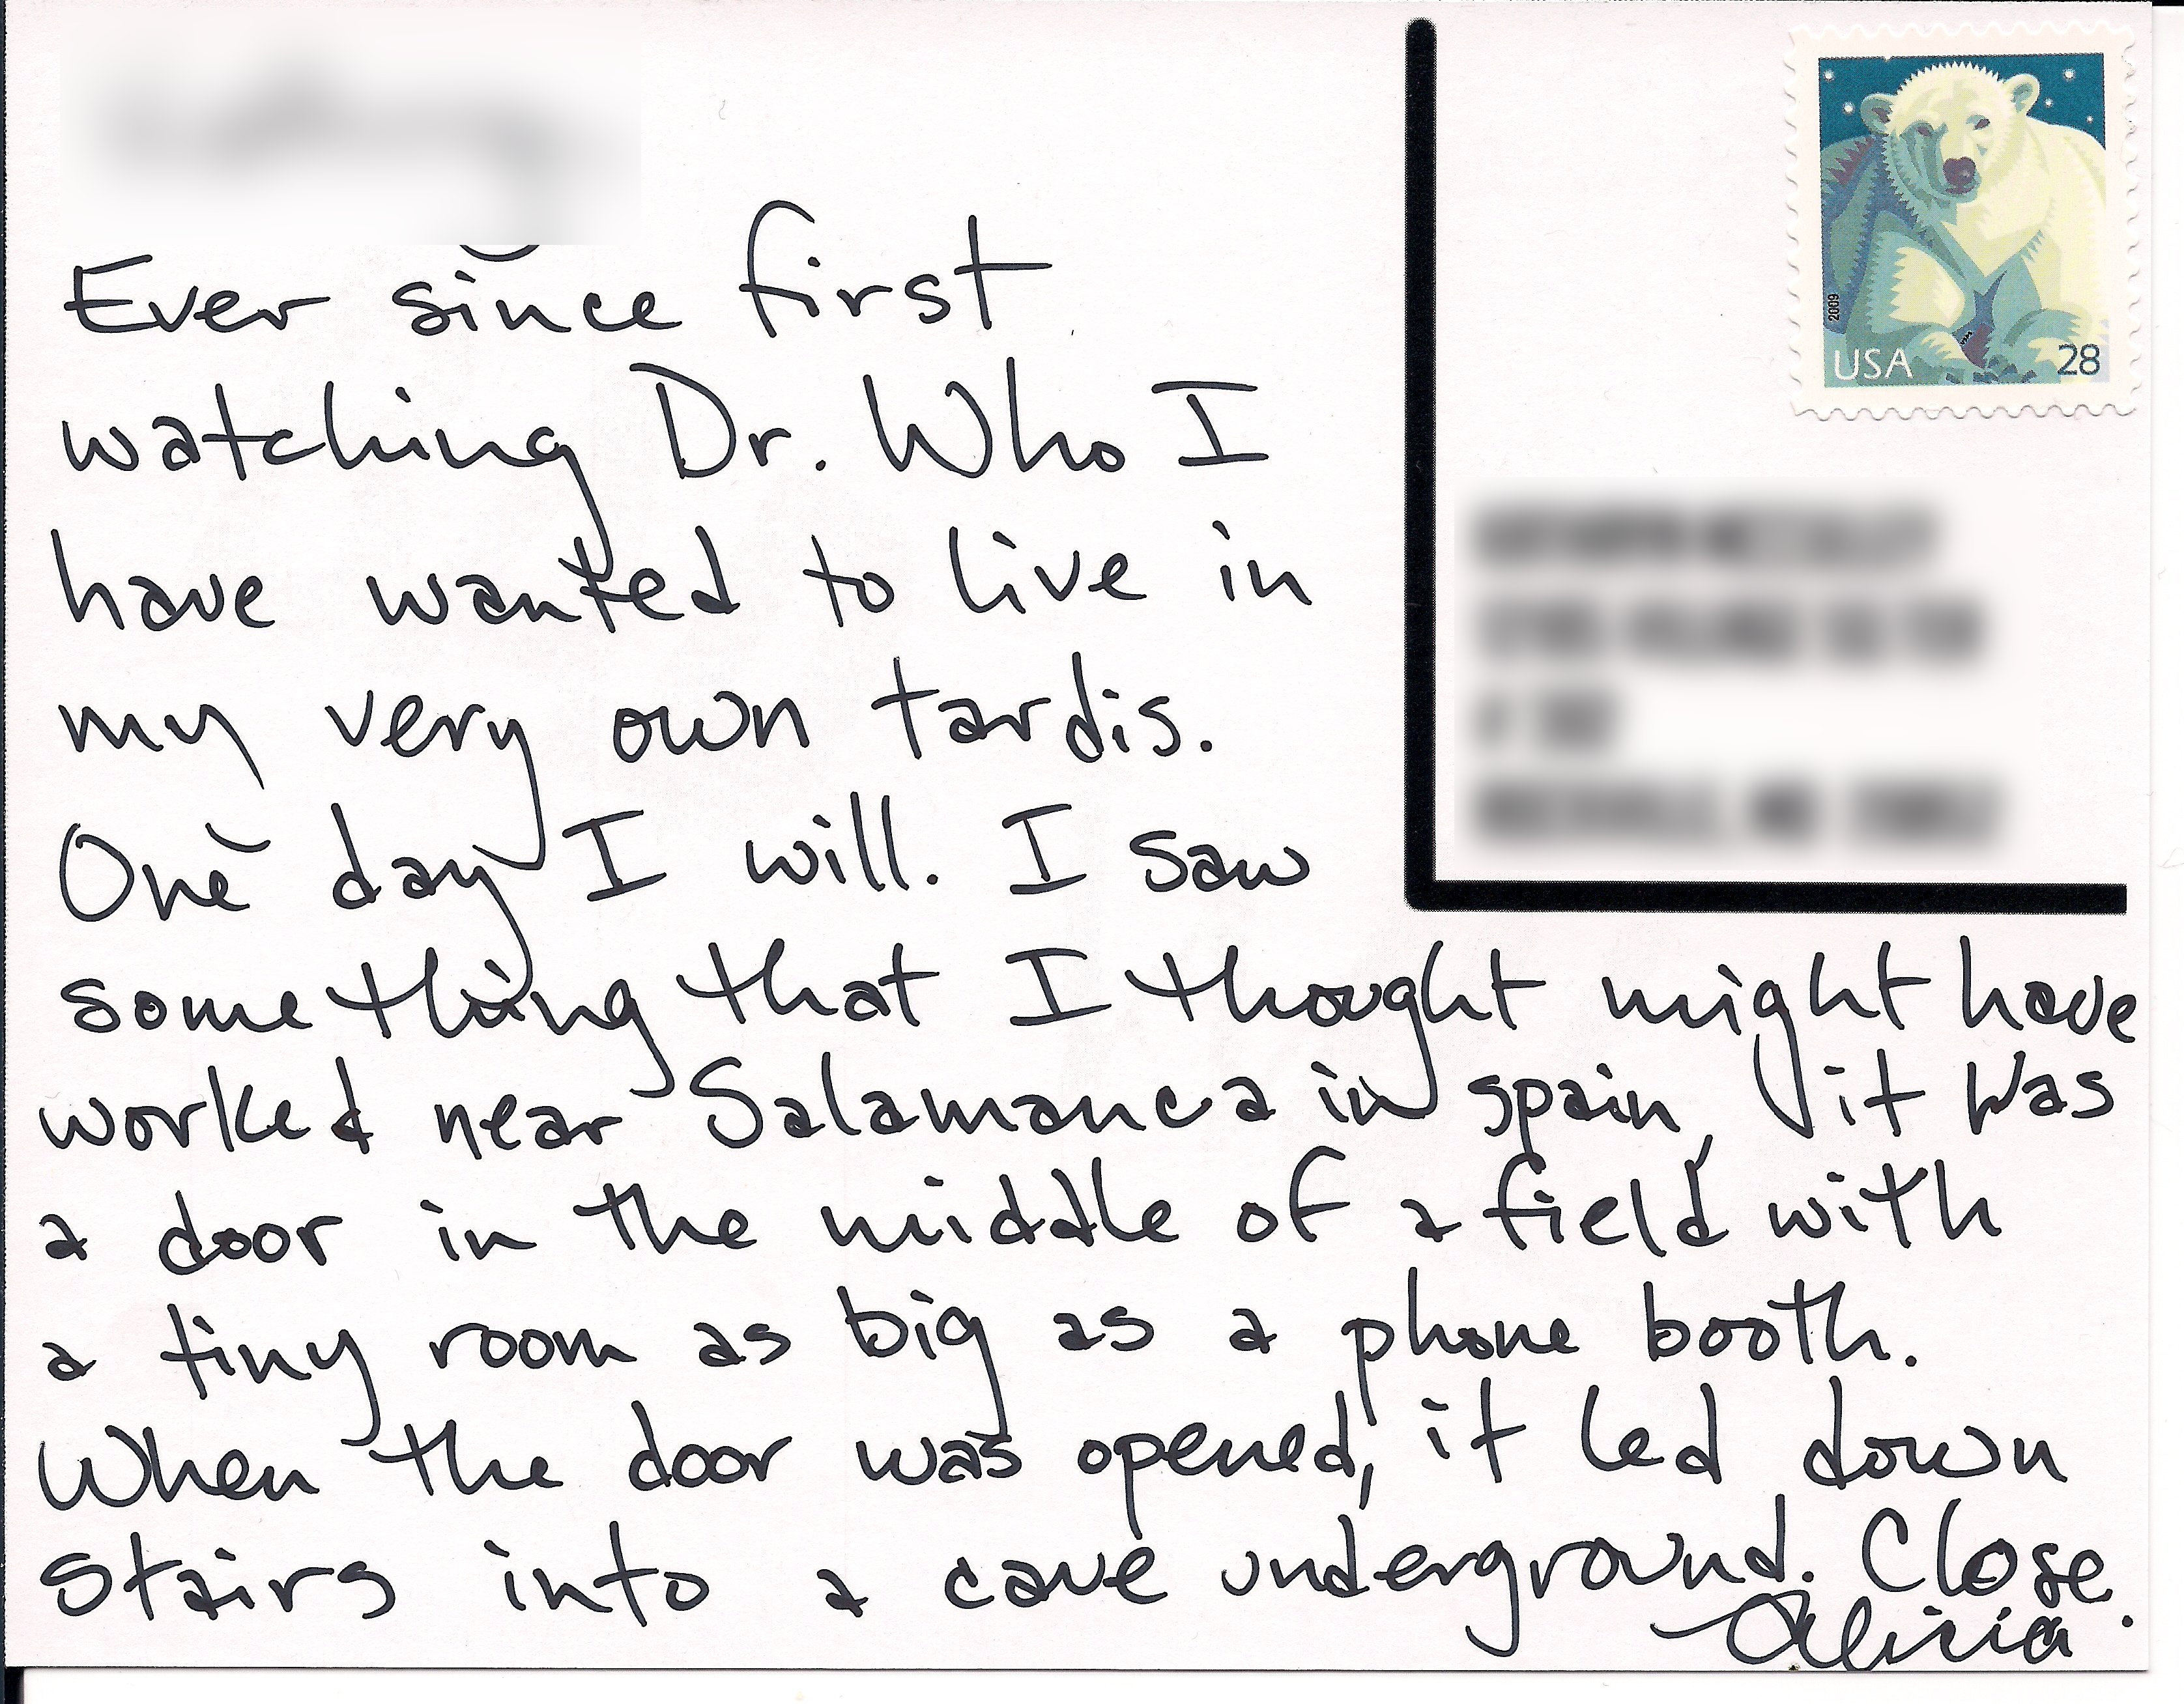 Ever since first
watching Dr. Who I
have wanted to live in
my very own tardis.
One day I will. I saw
something that I thought might have
worked near Salamanca in spain, it was
a door in the middle of a field with
a tiny room as big as a phone booth.
When the door was opened, it led down
stairs into a cave underground. Close.
Alicia
2009
USA 28